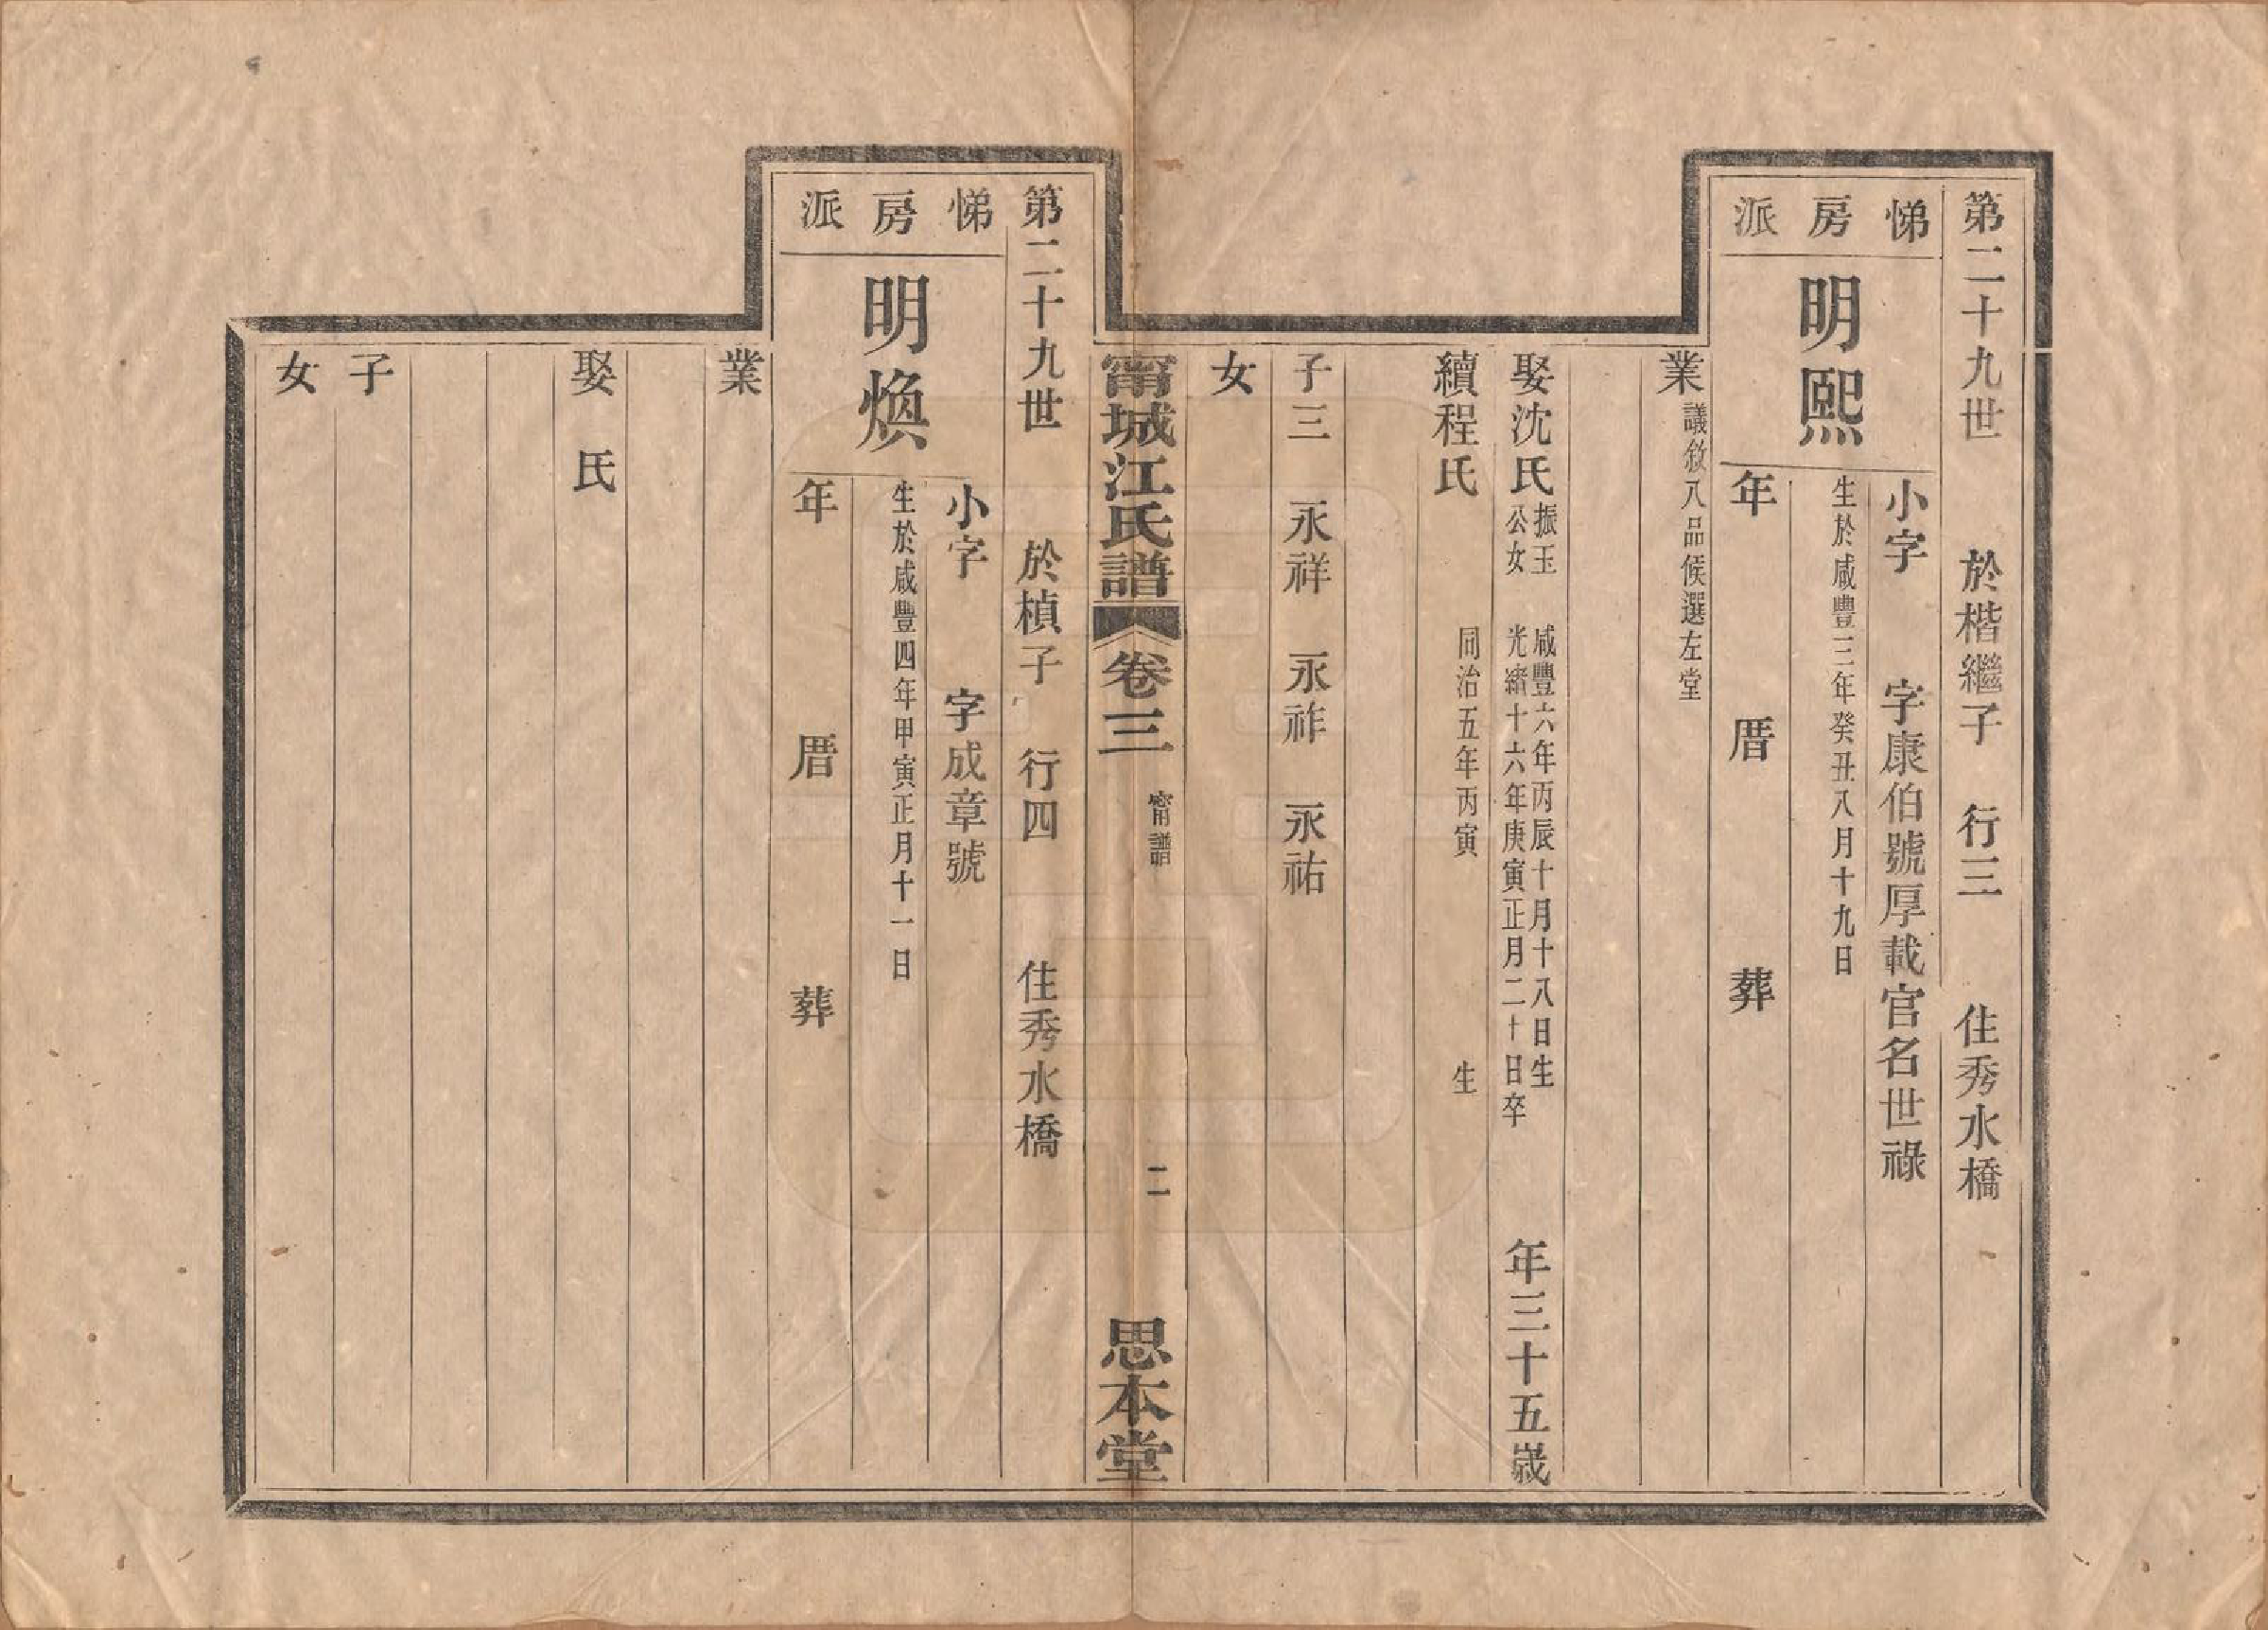 第二十九世　於楷繼子　行三　住秀水橋
悌房派
明熙
小字　字康伯號厚載官名世祿
生於咸豐三年癸丑八月十九日
年　厝　葬
業議敘八品候選左堂
娶沈氏振玉公女　咸豐六年丙辰十月十八日生
光緒十六年庚寅正月二十日卒　年三十五歲
續程氏　同治五年丙寅　生
子三　永祥　永祚　永祐
女
甯城江氏譜　卷三　甯譜　二　思本堂
第二十九世　於楨子　行四　住秀水橋
悌房派
明煥
小字　字成章號
生於咸豐四年甲寅正月十一日
年　厝　葬
業
娶　氏
子
女